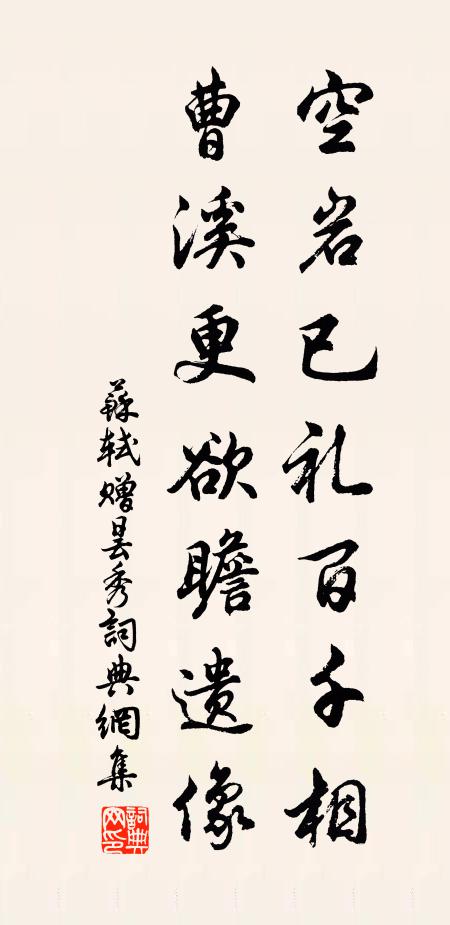 空岩已礼百千相
曹溪更欲瞻遗像
蘇轼赠昙秀詞典網集
詞典网印